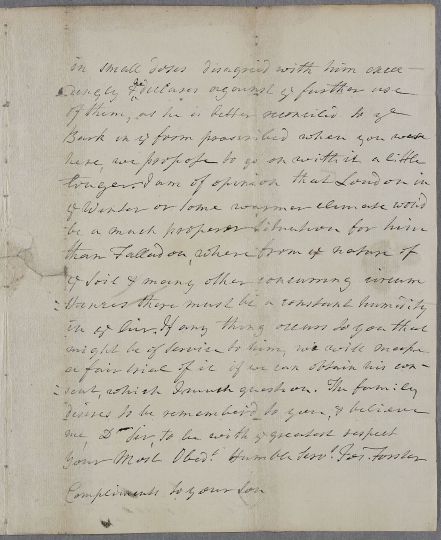 in small doses disagreed with him excee-
dingly & he declares against ye further use
of them, as he is better reconciled to ye
Bark in ye form prescribed when you were
here, we propose to go on with it a little
longer. I am of opinion that London in
ye Winter or some warmer climate would
be a much properer Situation for him
than Falladon, where from ye nature of
ye Soil & many other concurring circum
stances there must be a constant humidity
in ye Air, If any thing occurs to you that
might be of Service to him, we will make
a fair trial of it if we can obtain his con-
sent, which I much question. The family
desires to be remember'd to you, & believe
me, Dr Sir, to be with ye greatest respect
Your Most Obedt Humble Servt Jos. Forster
Compliments to your Son